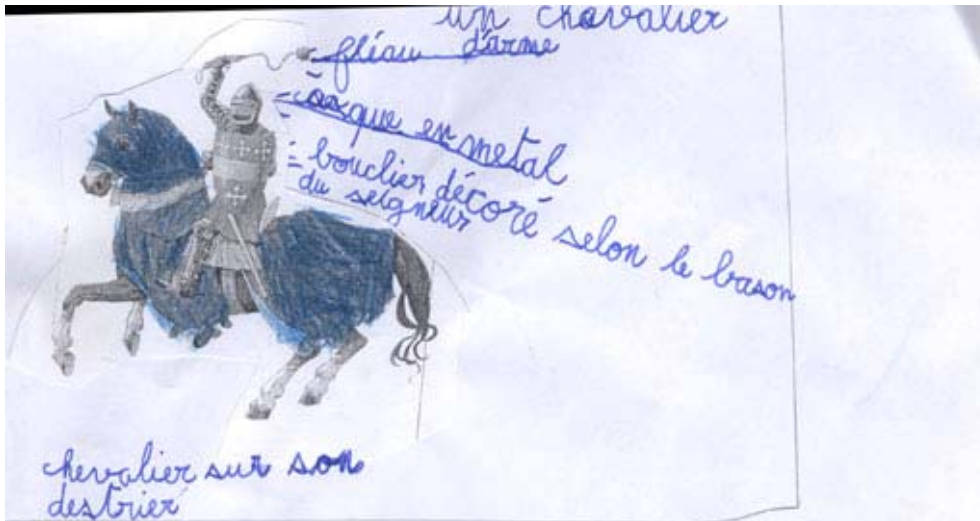 un chevalier
= fléau d'arme
= casque en metal
= bouclier décoré selon le bason
du seigneur
chevalier sur son
destrier